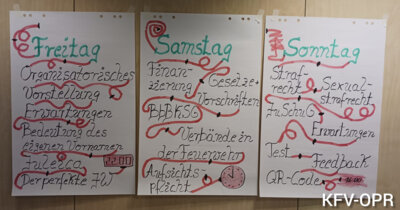 Freitag
Organisatorisches
Vorstellung
Erwartungen
Bedeutung des
eigenen Vornamen
Juleica
22:00
Der perfekte JW
Samstag
Finan-
zierung
Gesetze +
Vorschriften
BbBKSG
Verbände in
der Feuerwehr
Aufsichts-
pflicht
Sonntag
Straf-
recht
Sexual-
strafrecht
JuSchuG
Erwartungen
Test
Feedback
QR-Code
16:00
KFV-OPR